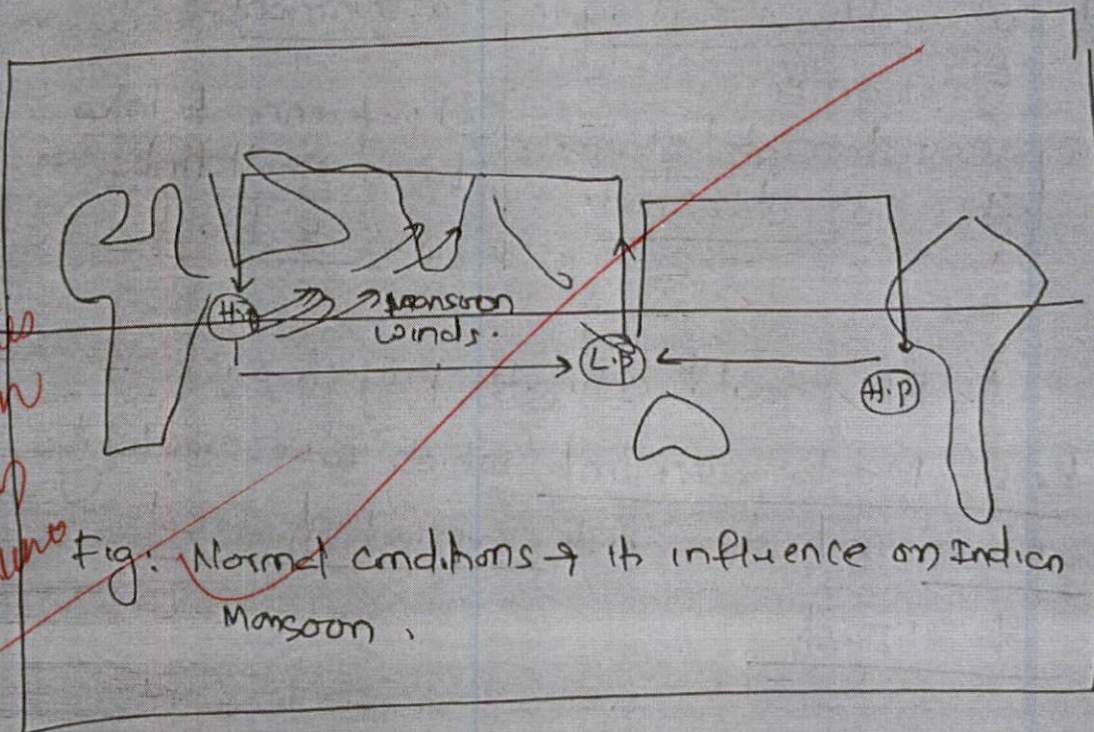 H.P
Monsoon
winds.
L.P
H.P
Fig: Normal conditions & its influence on Indian
Monsoon.